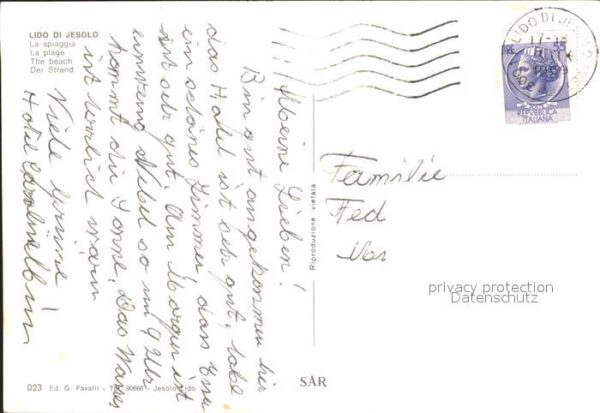 LIDO DI JESOLO
La spiaggia
La plage
The beach
Der Strand
Meine Lieben!
Bin gut angekommen hier
das Hotel ist sehr gut, habe
ein schönes Zimmer das Essen
ist sehr gut Am Morgen ist
Nebel so um 9 Uhr
kommt die Sonne, Das Wasser
ist herrlich warm
Viele Grüsse
Hotel
Riproduzione vietata
LIDO DI JESOLO
55
REPVBBLICA
ITALIANA
Familie
Fed
privacy protection
Datenschutz
SAR
023 Ed. G. Favalli - Tel. 90666 - Jesolo Lido